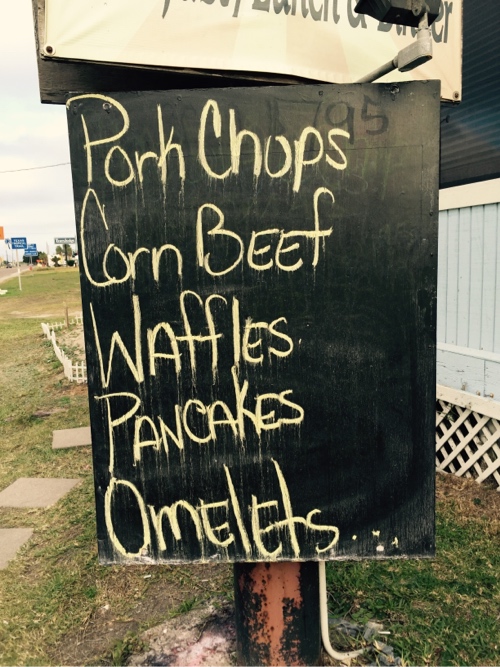 Lunch & Dinner
795
Pork Chops
Corn Beef
Waffles
Pancakes
Omelets...